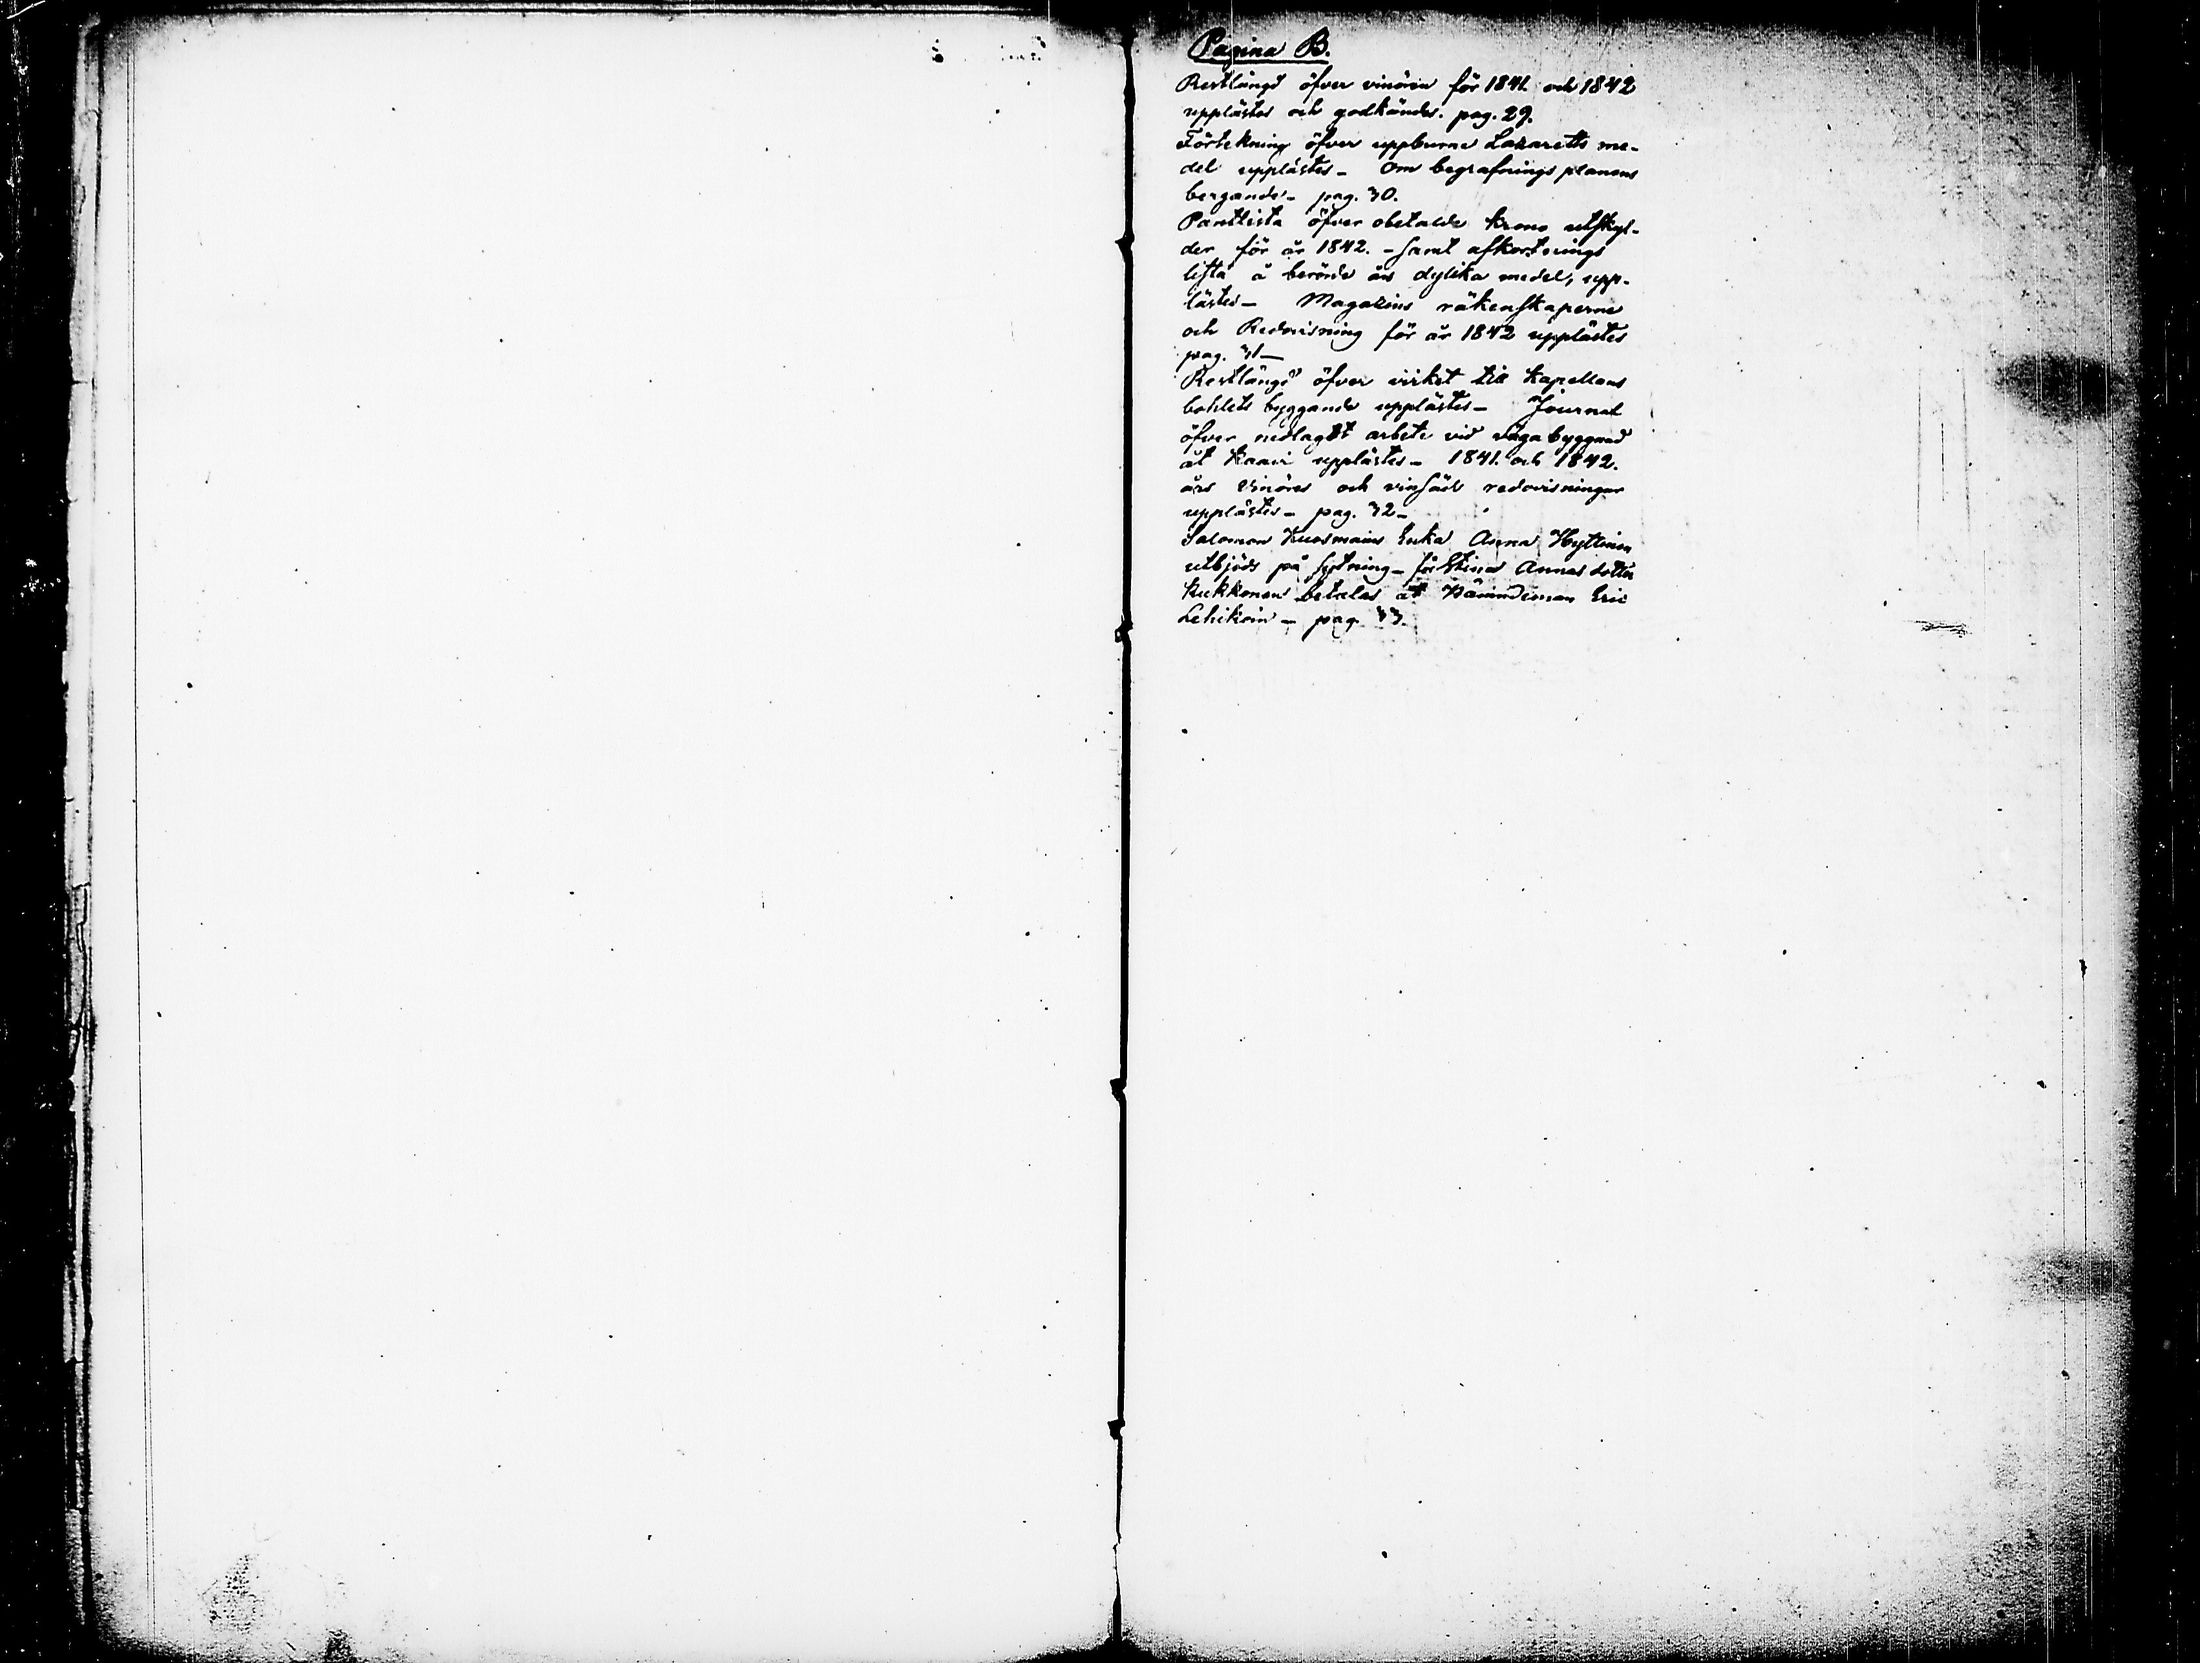 Pagina B.
Restlängd öfver vinören för 1841. och 1842
upplästes och godkändes. pag. 29.
Förtekning öfver uppburne Lazaretts me-
del upplästes - Om begrafnings planens
bergande - pag. 30.
Pantlista öfver obetalde Krono utskyl-
der för år 1842. - samt afkortnings
lista å berörde års dylika medel, upp-
lästes - Magazins räkenskaperne
och Redovisning för år 1842 upplästes
pag. 31 -
Restlängd öfver virket till Kapellans
bohlets byggande upplästes - Journal
öfver nedlagdt arbete vid väga byggnad
åt Kaavi upplästes - 1841. och 1842.
års Vinöres och vinsäd redovisningar
upplästes - pag. 32 -
Salomon Kuosmains Enka Anna Hyttinen
utbjöds på sytning - för Stina Annas dotter
Kukkonen betalas åt Nämndeman Eric
Lehikoin - pag. 33.